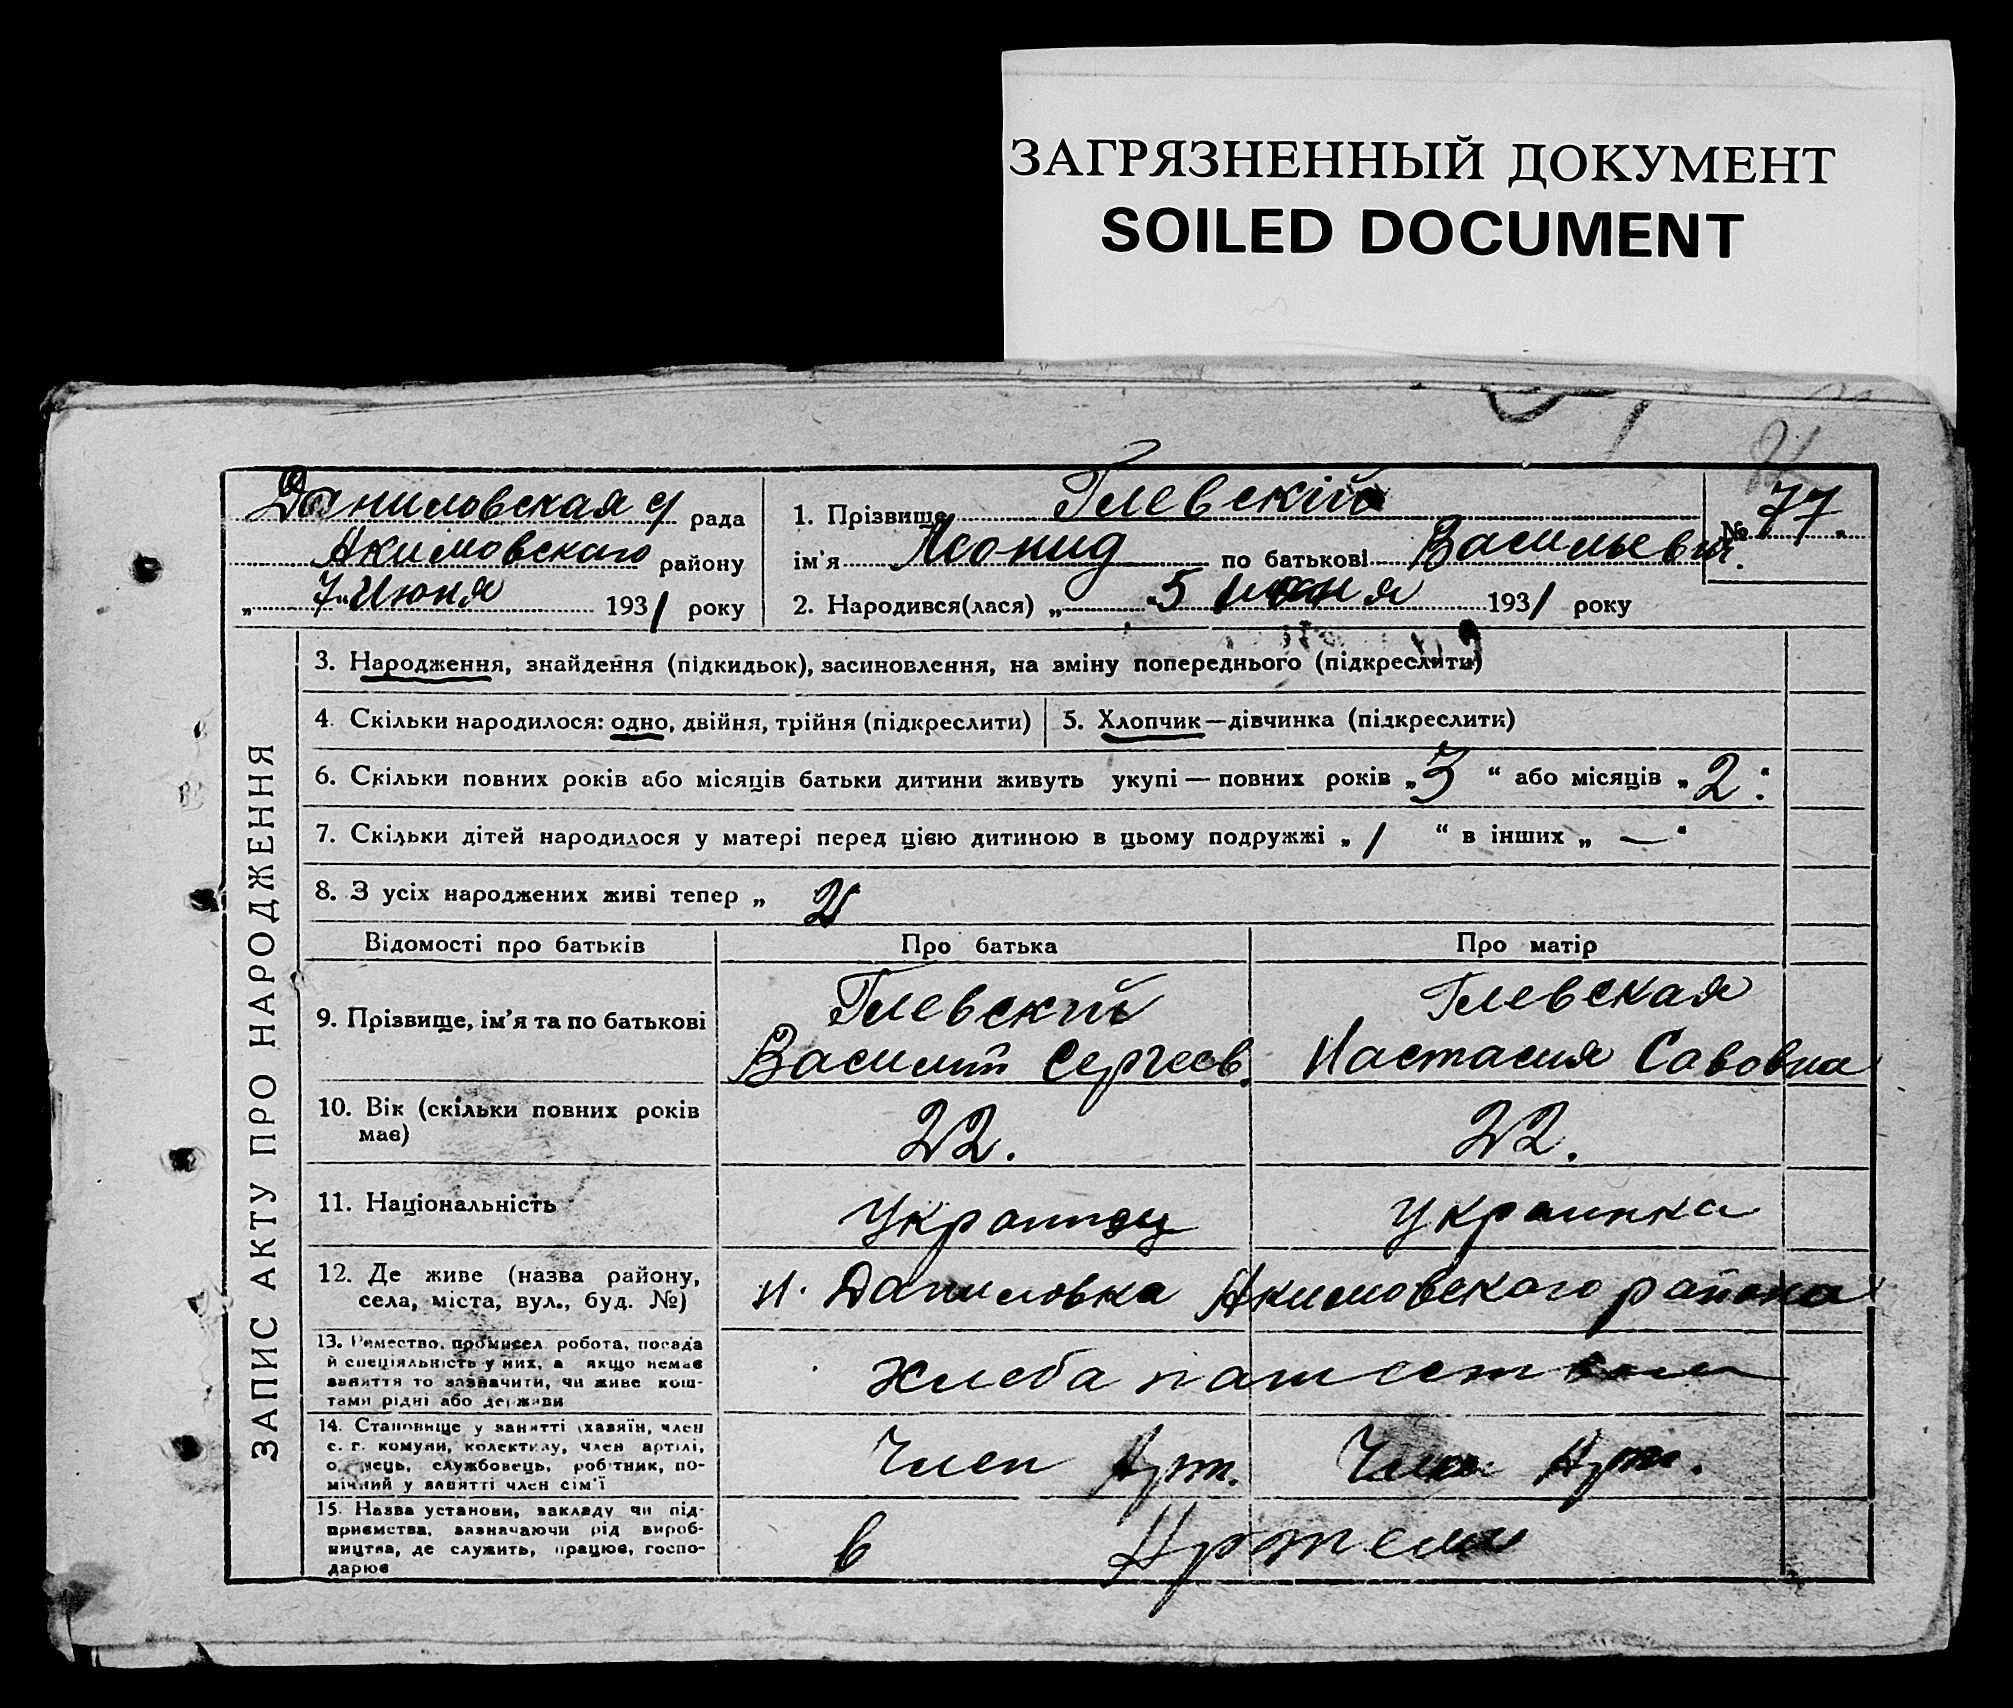 ЗАГРЯЗНЕННЫЙ ДОКУМЕНТ
SOILED DOCUMENT
Даниловская с/ рада
Акимовскаго району
„ 7 " Июня 1931 року
1. Прізвище Глевскій
№ 77.
ім'я Леонид по батькові Васильевич.
2. Народився(лася) „ 5 июня 1931 року
ЗАПИС АКТУ ПРО НАРОДЖЕННЯ
3. Народження, знайдення (підкидьок), засиновлення, на зміну попереднього (підкреслити)
4. Скільки народилося: одно, двійня, трійня (підкреслити)
5. Хлопчик—дівчинка (підкреслити)
6. Скільки повних років або місяців батьки дитини живуть укупі — повних років „ 3 “ або місяців „ 2 “
7. Скільки дітей народилося у матері перед цією дитиною в цьому подружжі „ 1 “ в інших „ — “
8. З усіх народжених живі тепер „ 2
Відомості про батьків
Про батька
Про матір
9. Прізвище, ім'я та по батькові
Глевский
Василий Сергеев.
Глевская
Настасия Савовна
10. Вік (скільки повних років
має)
22.
22.
11. Національність
Украинец
Украинка
12. Де живе (назва району,
села, міста, вул., буд. №)
н. Даниловка Акимовского района
13. Ремество, промисел, робота, посада
й спеціяльність у них, а якщо немає
заняття то зазначити, чи живе кош-
тами рідні або держави
Хлебапашество
14. Становище у занятті (хазяїн, член
с. г. комуни, колективу, член артілі,
службовець, робітник, по-
мічний у занятті член сім'ї
Член Арт.
Член Арт.
15. Назва установи, закладу чи під-
приємства, зазначаючи рід вироб-
ництва, де служить, працює, госпо-
дарює
в Артели